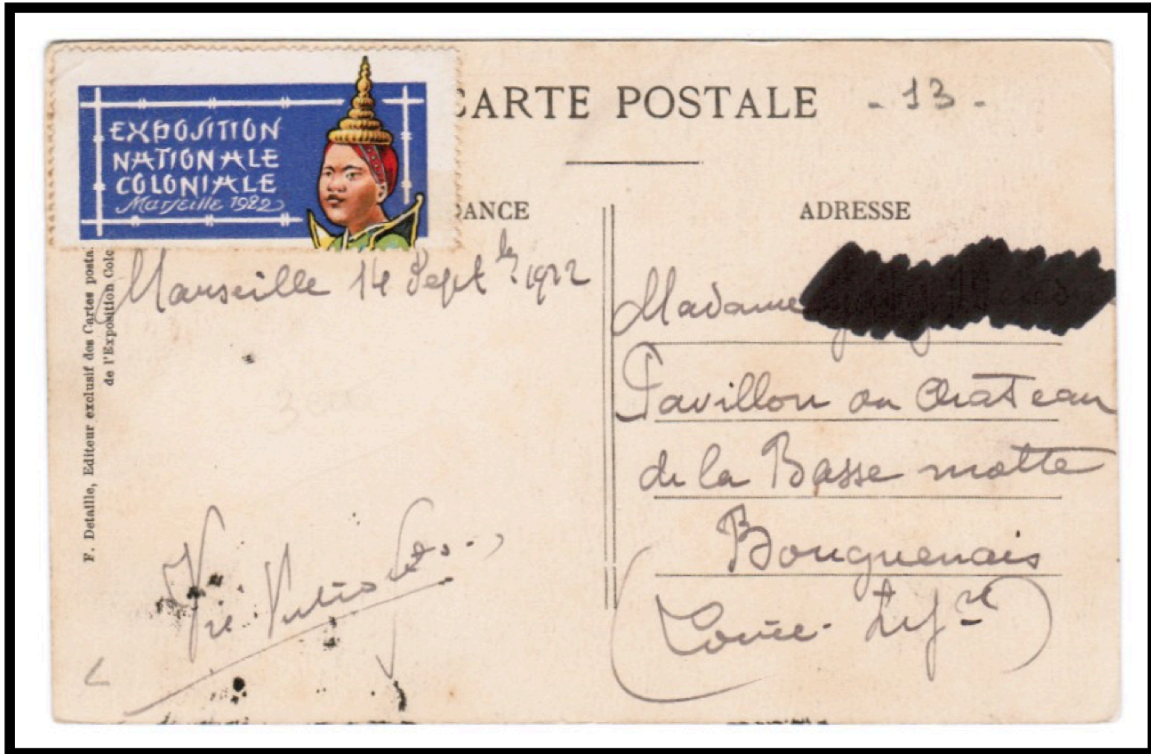 CARTE POSTALE - 13 -
EXPOSITION
NATIONALE
COLONIALE
Marseille 1922
DANCE
ADRESSE
F. Detaille, Editeur exclusif des Cartes posta
de l'Exposition Colo
Marseille 14 Septbre 1922
Madame
Pavillon du Château
de la Basse motte
Bouguenais
(Loire Infre)